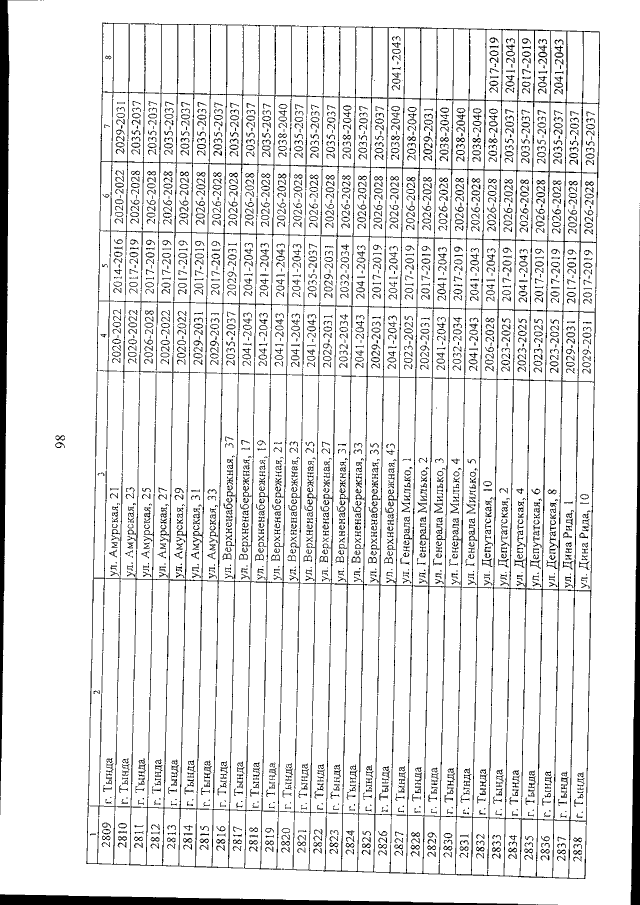 98
1 2 3 4 5 6 7 8
2809 г. Тында ул. Амурская, 21 2020-2022 2014-2016 2020-2022 2029-2031
2810 г. Тында ул. Амурская, 23 2020-2022 2017-2019 2026-2028 2035-2037
2811 г. Тында ул. Амурская, 25 2026-2028 2017-2019 2026-2028 2035-2037
2812 г. Тында ул. Амурская, 27 2020-2022 2017-2019 2026-2028 2035-2037
2813 г. Тында ул. Амурская, 29 2020-2022 2017-2019 2026-2028 2035-2037
2814 г. Тында ул. Амурская, 31 2029-2031 2017-2019 2026-2028 2035-2037
2815 г. Тында ул. Амурская, 33 2029-2031 2017-2019 2026-2028 2035-2037
2816 г. Тында ул. Верхненабережная, 37 2035-2037 2029-2031 2026-2028 2035-2037
2817 г. Тында ул. Верхненабережная, 17 2041-2043 2041-2043 2026-2028 2035-2037
2818 г. Тында ул. Верхненабережная, 19 2041-2043 2041-2043 2026-2028 2035-2037
2819 г. Тында ул. Верхненабережная, 21 2041-2043 2041-2043 2026-2028 2038-2040
2820 г. Тында ул. Верхненабережная, 23 2041-2043 2041-2043 2026-2028 2035-2037
2821 г. Тында ул. Верхненабережная, 25 2041-2043 2035-2037 2026-2028 2035-2037
2822 г. Тында ул. Верхненабережная, 27 2029-2031 2029-2031 2026-2028 2035-2037
2823 г. Тында ул. Верхненабережная, 31 2032-2034 2032-2034 2026-2028 2038-2040
2824 г. Тында ул. Верхненабережная, 33 2041-2043 2041-2043 2026-2028 2035-2037
2825 г. Тында ул. Верхненабережная, 35 2029-2031 2017-2019 2026-2028 2035-2037
2826 г. Тында ул. Верхненабережная, 43 2041-2043 2041-2043 2026-2028 2038-2040 2041-2043
2827 г. Тында ул. Генерала Милько, 1 2023-2025 2017-2019 2026-2028 2038-2040
2828 г. Тында ул. Генерала Милько, 2 2029-2031 2017-2019 2026-2028 2029-2031
2829 г. Тында ул. Генерала Милько, 3 2041-2043 2041-2043 2026-2028 2038-2040
2830 г. Тында ул. Генерала Милько, 4 2032-2034 2017-2019 2026-2028 2038-2040
2831 г. Тында ул. Генерала Милько, 5 2041-2043 2041-2043 2026-2028 2038-2040
2832 г. Тында ул. Депутатская, 10 2026-2028 2041-2043 2026-2028 2038-2040 2017-2019
2833 г. Тында ул. Депутатская, 2 2023-2025 2017-2019 2026-2028 2035-2037 2041-2043
2834 г. Тында ул. Депутатская, 4 2023-2025 2041-2043 2026-2028 2035-2037 2017-2019
2835 г. Тында ул. Депутатская, 6 2023-2025 2017-2019 2026-2028 2035-2037 2041-2043
2836 г. Тында ул. Депутатская, 8 2023-2025 2017-2019 2026-2028 2035-2037 2041-2043
2837 г. Тында ул. Дина Рида, 1 2029-2031 2017-2019 2026-2028 2035-2037
2838 г. Тында ул. Дина Рида, 10 2029-2031 2017-2019 2026-2028 2035-2037